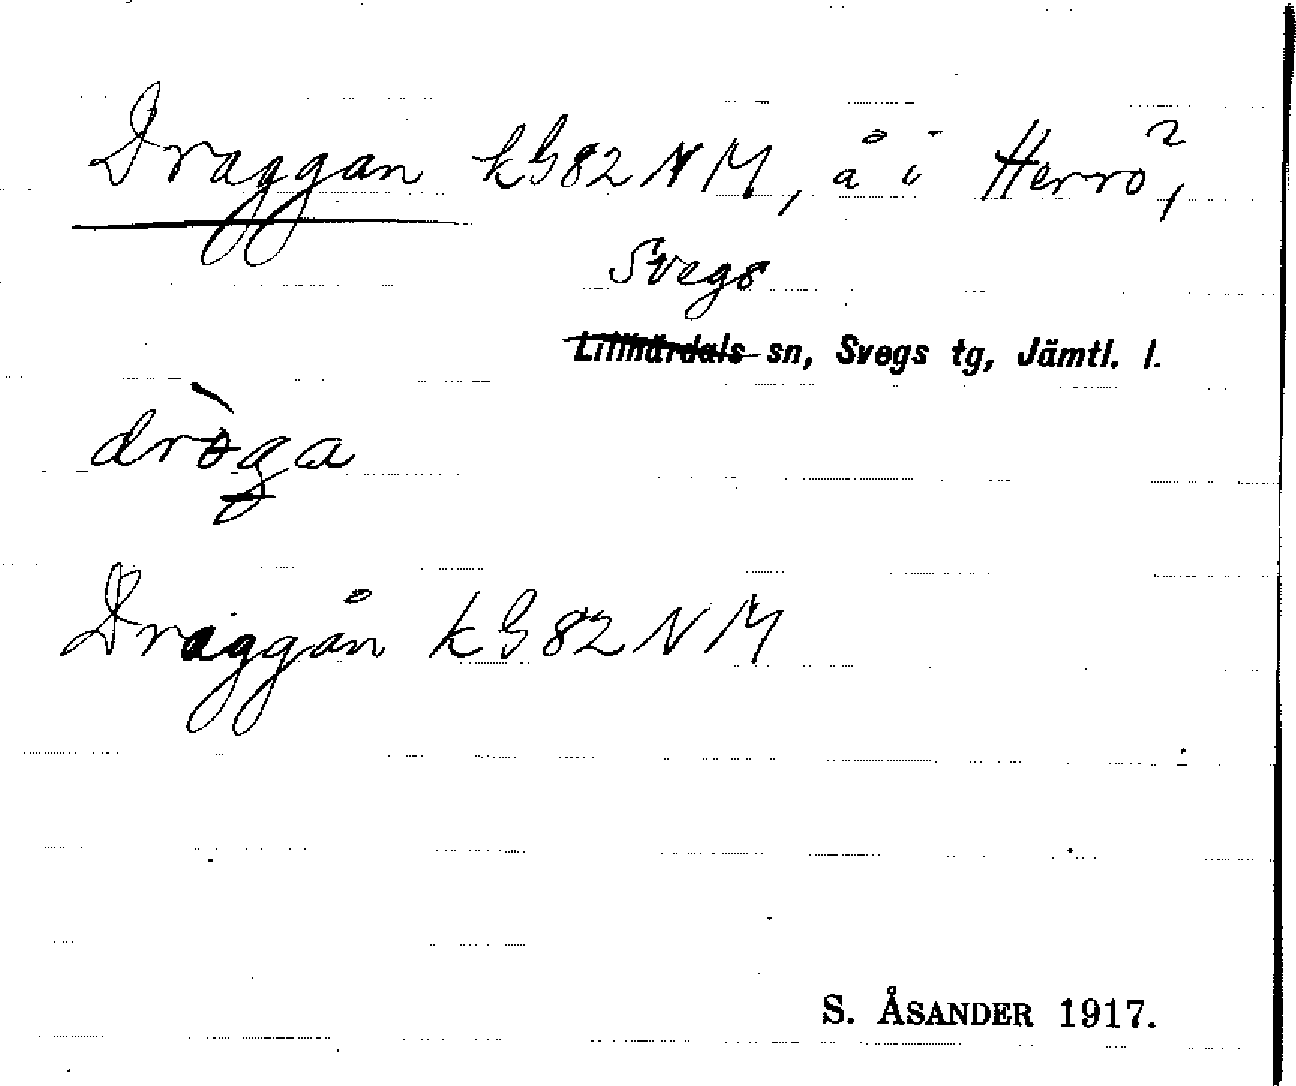 Draggan kG82NM, å i Herrö,
Svegs
Lillhärdals sn, Svegs tg, Jämtl. l.
Draggån kG82NM
S. ÅSANDER 1917.